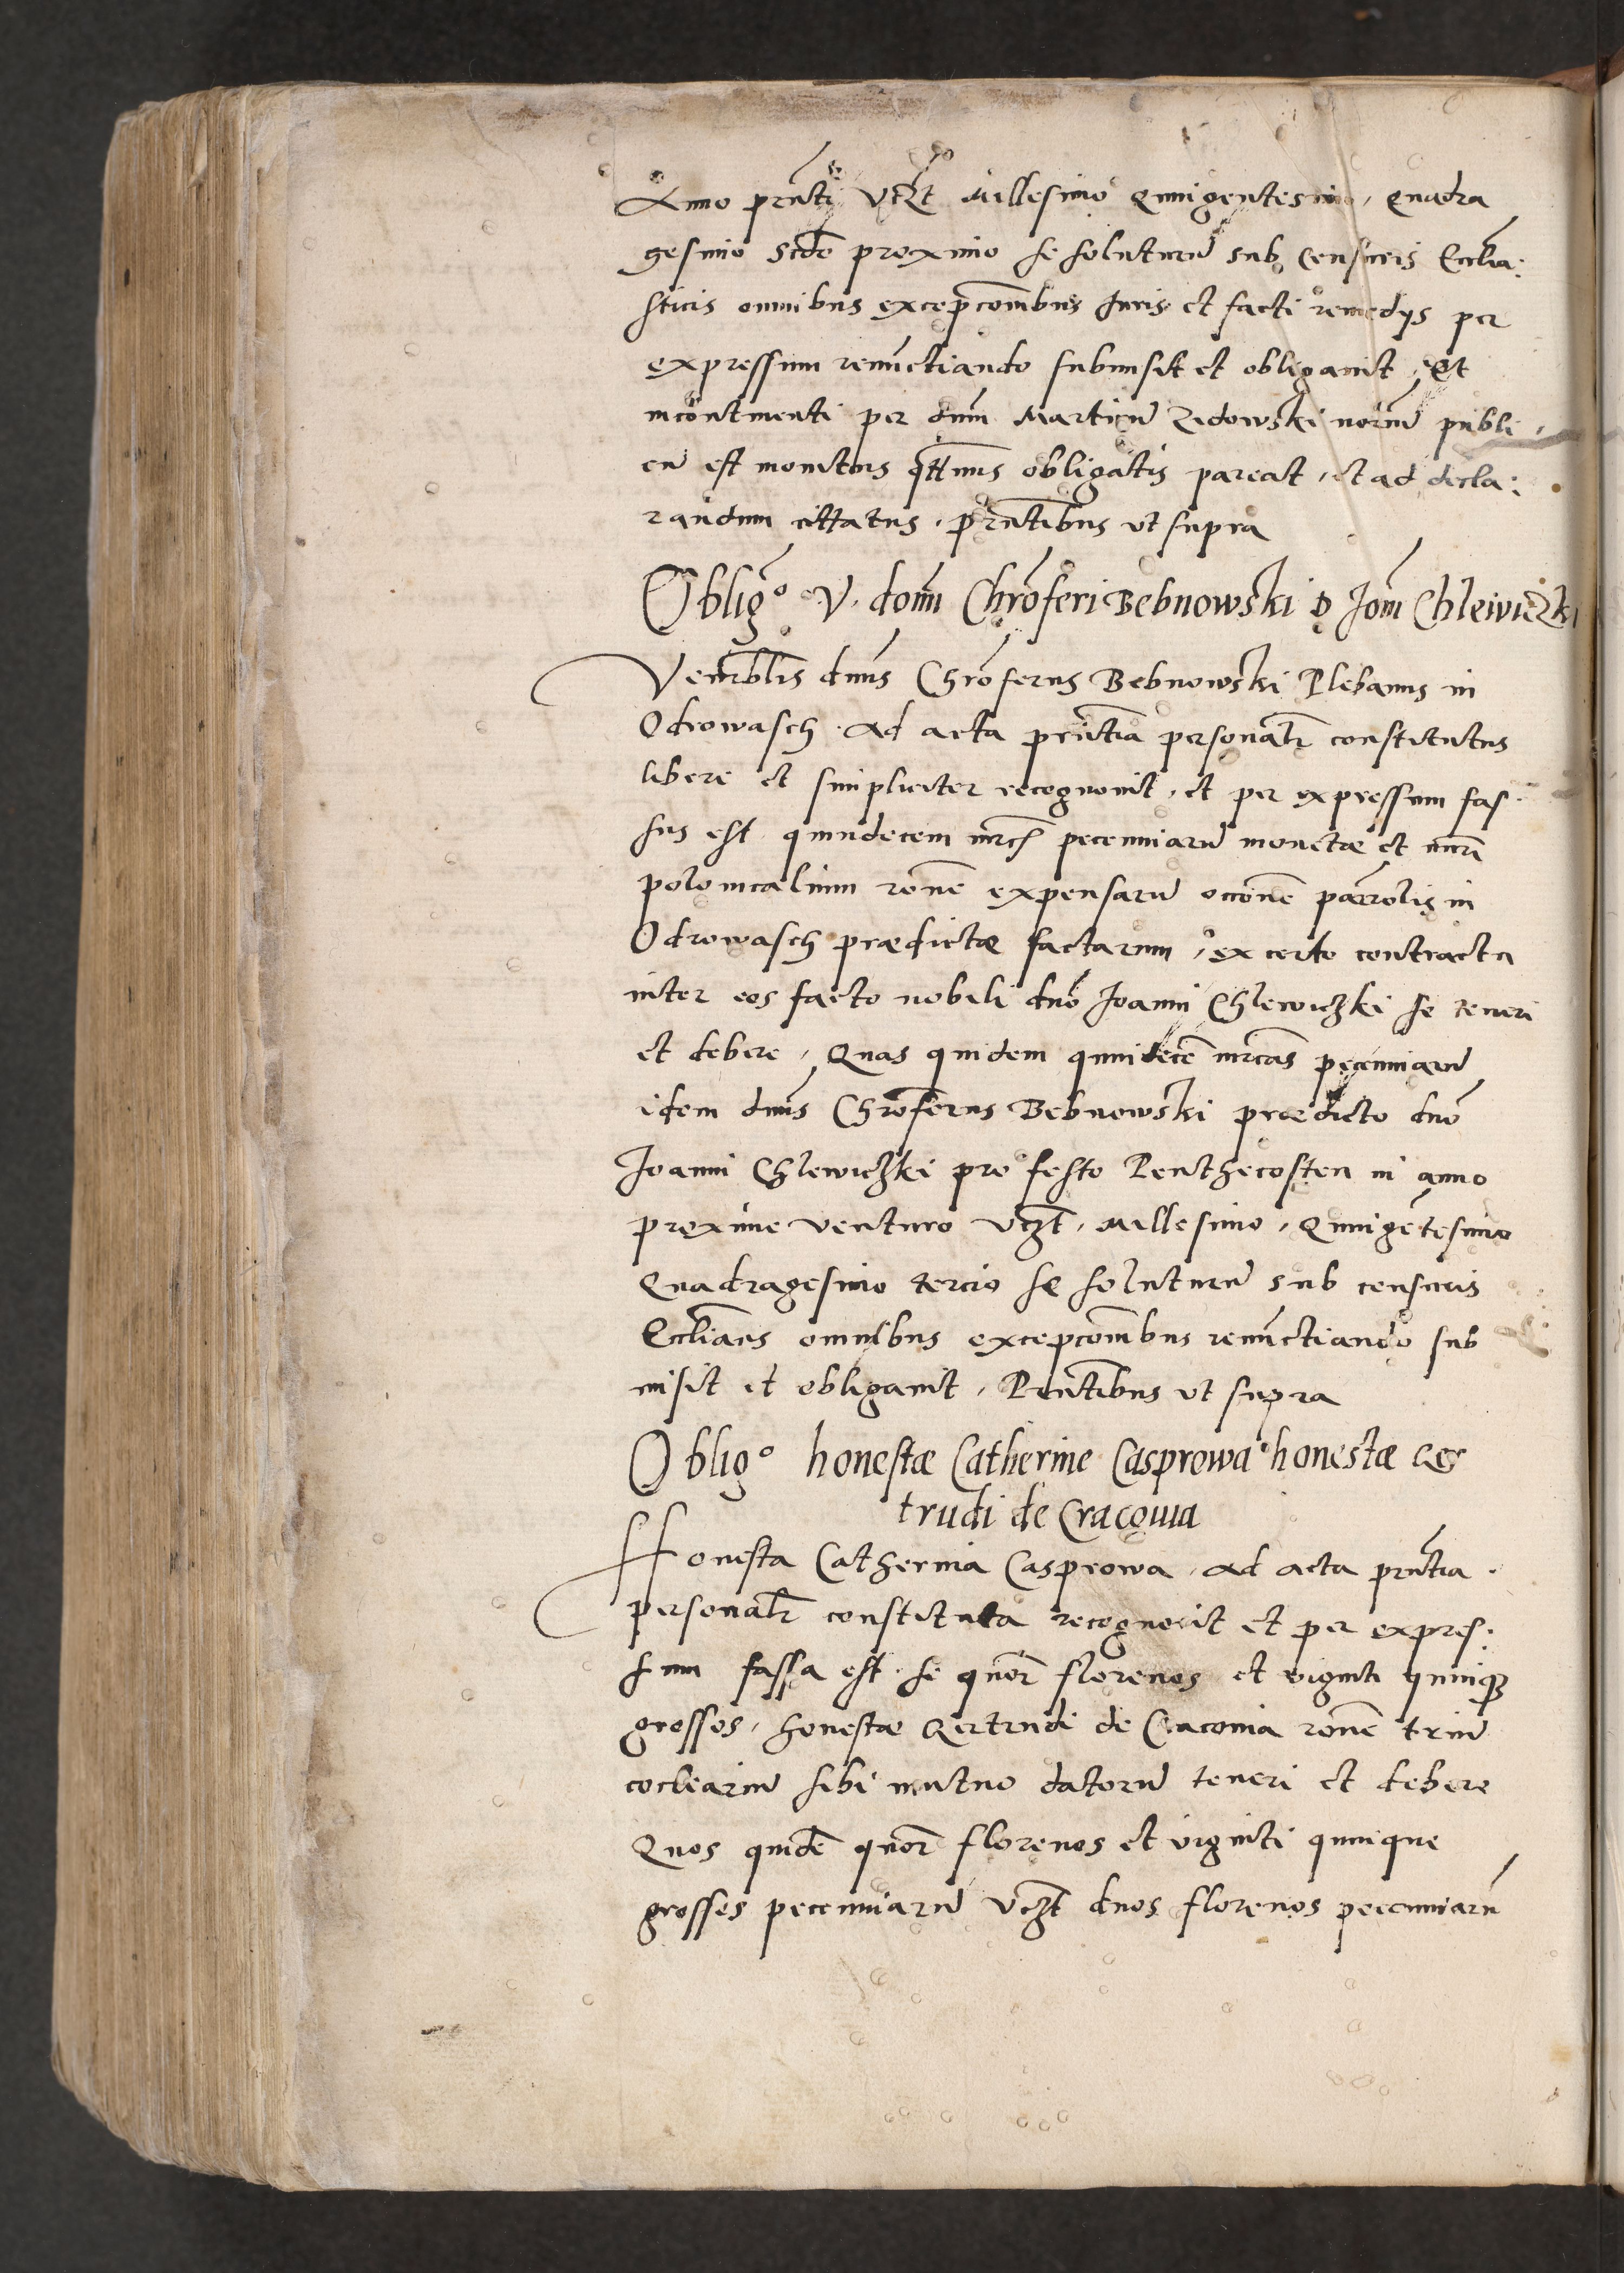 Anno prnti vtzt Millesimo Quingentesimo, Quadra
gesimo Scdo proximo se soluturu sub Censuris Ecclia:
sticis omnibus excepcombus Juris et facti remedijs per
expressum renuctiando submisit et obligauit, Et
incontinenti per dnm Martinu Zedowski noriu publi,
cu est monitus qttnus obligatis pareat, et ad decla:
randum cittatus. Prntibus vt supra
Oblig° V. domi Chroferi Bebnowski D Joni Chleiuiczki
Venerblis dnus Chroferus Bebnowski Plebanus in
Odrowasch. Ad acta prntia personalr constitutus
libere et simpliciter recognouit, et per expressum fas.
sus est quindecem mrcs pecenniaru monetæ et nuri
polonicalium ronne expensaru occone parrolis in
Odrowasch prædictæ factarum, ex certo contractu
inter eos facto nobili dno Joanni Chlewiczki se teneri
et debere, Quas quidem quindece mrcas pecenniaru
idem dnus Chroferus Bebnowski prædicto dno
Joanni Chlewiczki pro festo Penthecosten in anno
proxime venturo vtzt, Millesimo, Quingetesimo
Quadragesimo tercio se soluturu sub censuris
Ecclianis omnibus excepcombus renuctiando sub
misit et obligauit, Prntibus vt supra
Oblig° honestæ Catherine Casprowa honestæ Ger
trudi de Cracouia
Honesta Catherina Casprowa, Ad acta prntia.
personalr constituta recognouit et per expres.
sum fassa est se quor florenos et viginti quinq
grossos, honestæ Gertrudi de Cracouia rone triu
cocleariu sibi mutuo datoru teneri et debere
Quos quide quor florenos et viginti quinque
grosses pecenniaru vtzt duos florenos pecenniaru